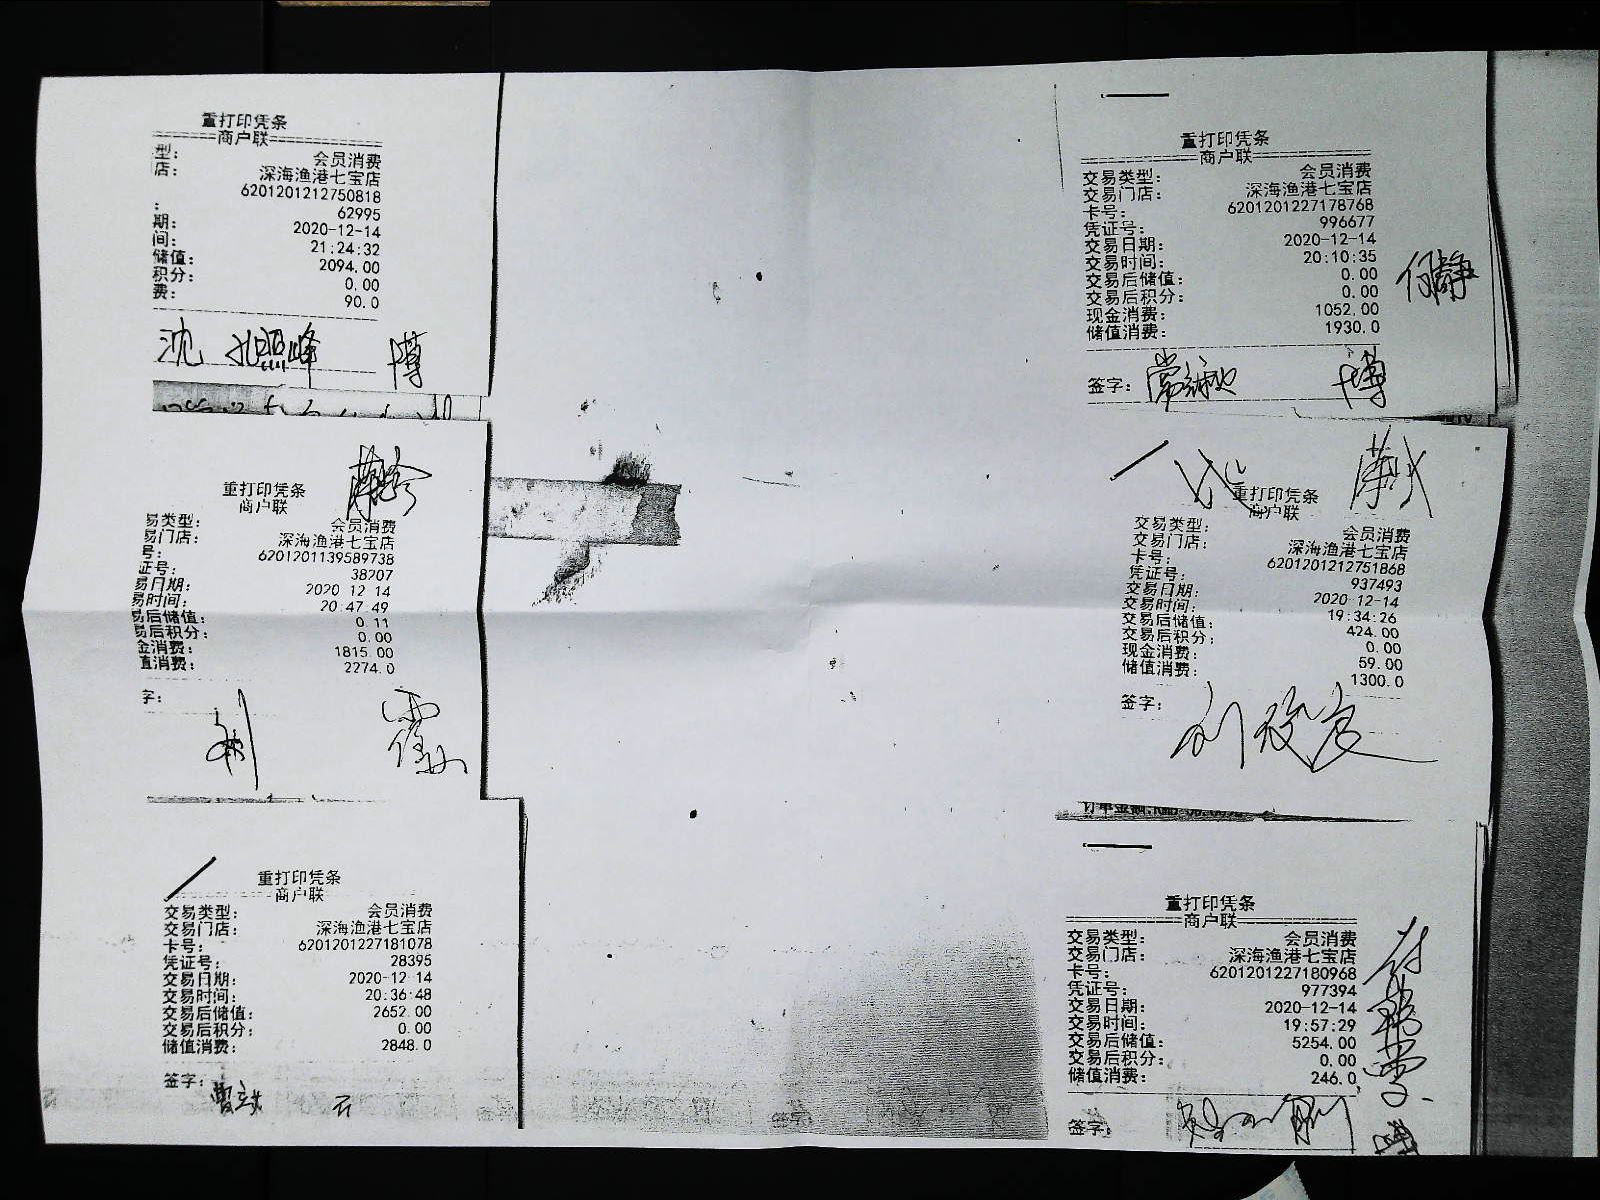 重打印凭条
商户联
型： 会员消费
店： 深海渔港七宝店
6201201212750818
： 62995
期： 2020-12-14
间： 21:24:32
储值： 2094.00
积分： 0.00
费： 90.0
沈 孔照峰 博
重打印凭条
商户联
易类型： 会员消费
易门店： 深海渔港七宝店
号： 6201201139589738
证号： 38207
易日期： 2020 12 14
易时间： 20:47:49
易后储值： 0.11
易后积分： 0.00
金消费： 1815.00
值消费： 2274.0
字：
重打印凭条
商户联
交易类型： 会员消费
交易门店： 深海渔港七宝店
卡号： 6201201227181078
凭证号： 28395
交易日期： 2020-12-14
交易时间： 20:36:48
交易后储值： 2652.00
交易后积分： 0.00
储值消费： 2848.0
签字：
重打印凭条
商户联
交易类型： 会员消费
交易门店： 深海渔港七宝店
卡号： 6201201227178768
凭证号： 996677
交易日期： 2020-12-14
交易时间： 20:10:35
交易后储值： 0.00
交易后积分： 0.00
现金消费： 1052.00
储值消费： 1930.0
何静
签字： 博
重打印凭条
商户联
交易类型： 会员消费
交易门店： 深海渔港七宝店
卡号： 6201201212751868
凭证号： 937493
交易日期： 2020-12-14
交易时间： 19:34:26
交易后储值： 424.00
交易后积分： 0.00
现金消费： 59.00
储值消费： 1300.0
签字：
重打印凭条
商户联
交易类型： 会员消费
交易门店： 深海渔港七宝店
卡号： 6201201227180968
凭证号： 977394
交易日期： 2020-12-14
交易时间： 19:57:29
交易后储值： 5254.00
交易后积分： 0.00
储值消费： 246.0
签字：